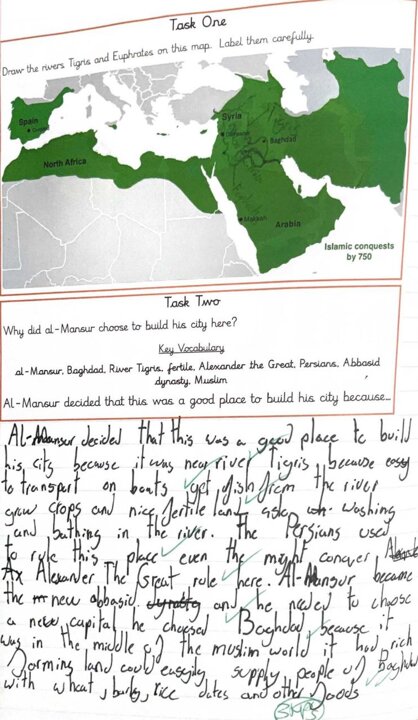 Task One
Draw the rivers Tigris and Euphrates on this map. Label them carefully.
Spain
Syria
Baghdad
North Africa
Makkah
Arabia
Islamic conquests
by 750
Task Two
Why did al-Mansur choose to build his city here?
Key Vocabulary
al-Mansur, Baghdad, River Tigris, fertile, Alexander the Great, Persians, Abbasid
dynasty, Muslim
Al-Mansur decided that this was a good place to build his city because...
Al-Mansur decided that this was a good place to build
his city because it was near river Tigris because easy
to transport on boats get fish from the river
grow crops and nice fertile land washing
and bathing in the river. The Persians used
to rule this place even the might conquer
Alexander The Great rule here. Al-Mansur became
the new abbasid and he needed to choose
a new capital he choosed Baghdad because it
was in the middle of the muslim world it had rich
farming land could easily supply people of Baghdad
with wheat, barly, rice dates and other foods